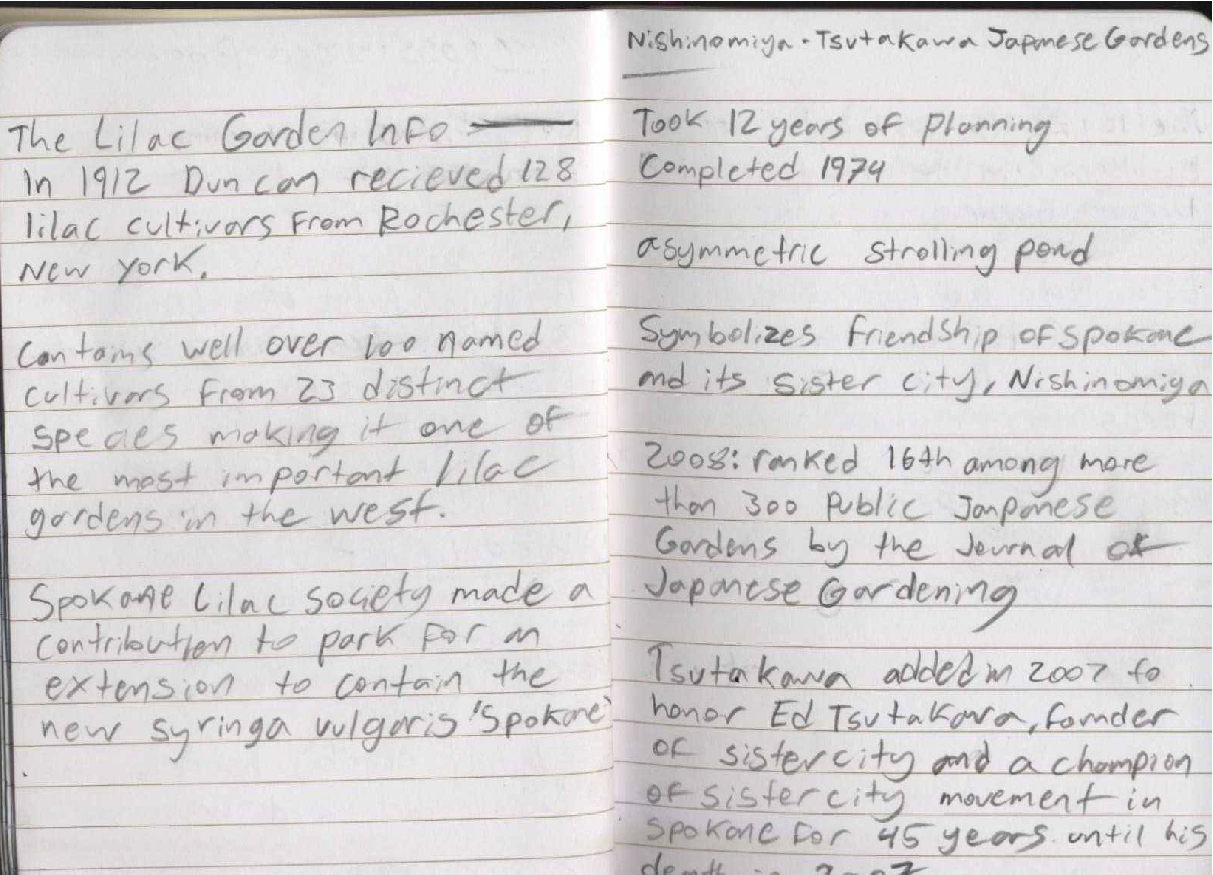 The Lilac Garden Info
In 1912 Duncan recieved 128
lilac cultivars from Rochester,
New York.
Contains well over 100 named
cultivars from 23 distinct
species making it one of
the most important lilac
gardens in the west.
Spokane Lilac society made a
contribution to park for an
extension to contain the
new syringa vulgaris 'Spokane'
Nishinomiya - Tsutakawa Japnese Gardens
Took 12 years of planning
Completed 1974
asymmetric strolling pond
Symbolizes friendship of Spokane
and its sister city, Nishinomiya
2008: ranked 16th among more
than 300 public Janpanese
Gardens by the Journal of
Japanese Gardening
Tsutakawa added in 2007 to
honor Ed Tsutakawa, founder
of sister city and a champion
of sister city movement in
Spokane for 45 years until his
death in 2007